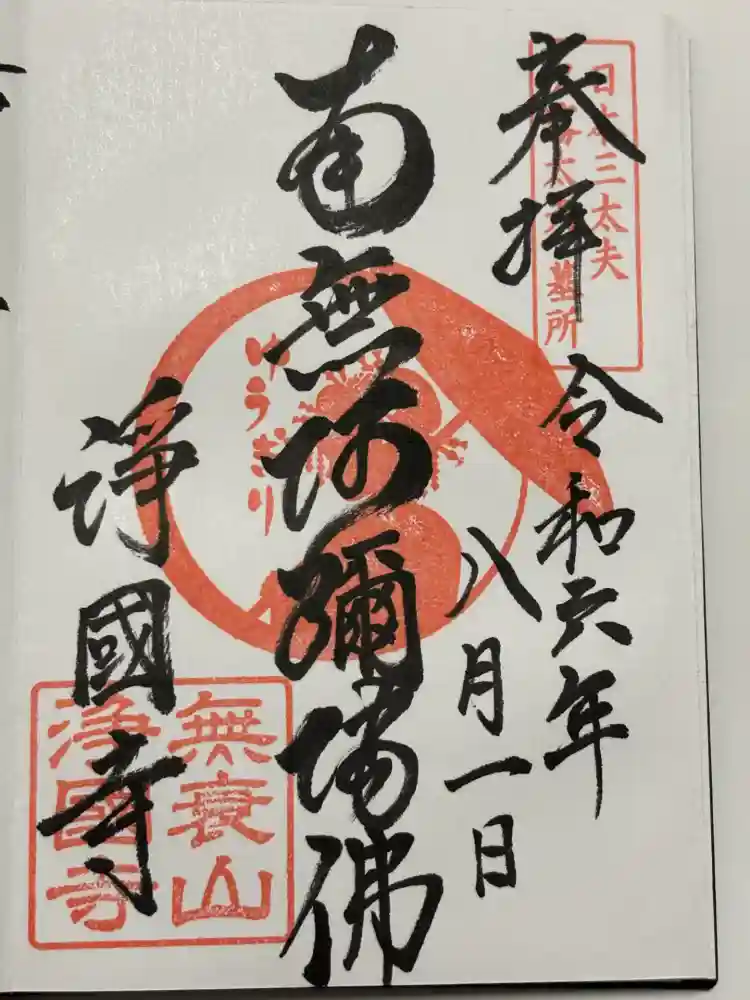 日本三太夫
夕霧太夫墓所
奉拝
令和六年
八月一日
南無阿彌陀佛
ゆうぎり
浄國寺
無衰山
浄國寺